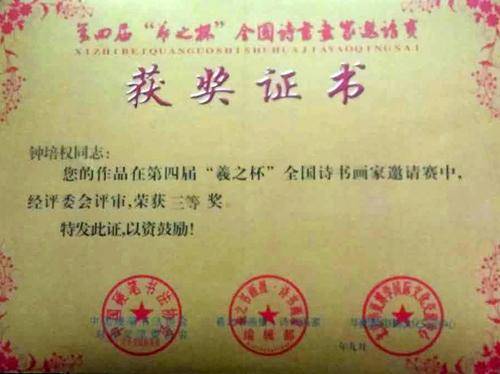 第四届“羲之杯”全国诗书画家邀请赛
XIZHIBEIQUANGUOSHISHUHUAJIAYAOQINGSAI
获奖证书
钟培权同志：
您的作品在第四届“羲之杯”全国诗书画家邀请赛中，
经评委会评审，荣获 三等 奖
特发此证，以资鼓励！
中国硬笔书法协会
编辑部
年九月